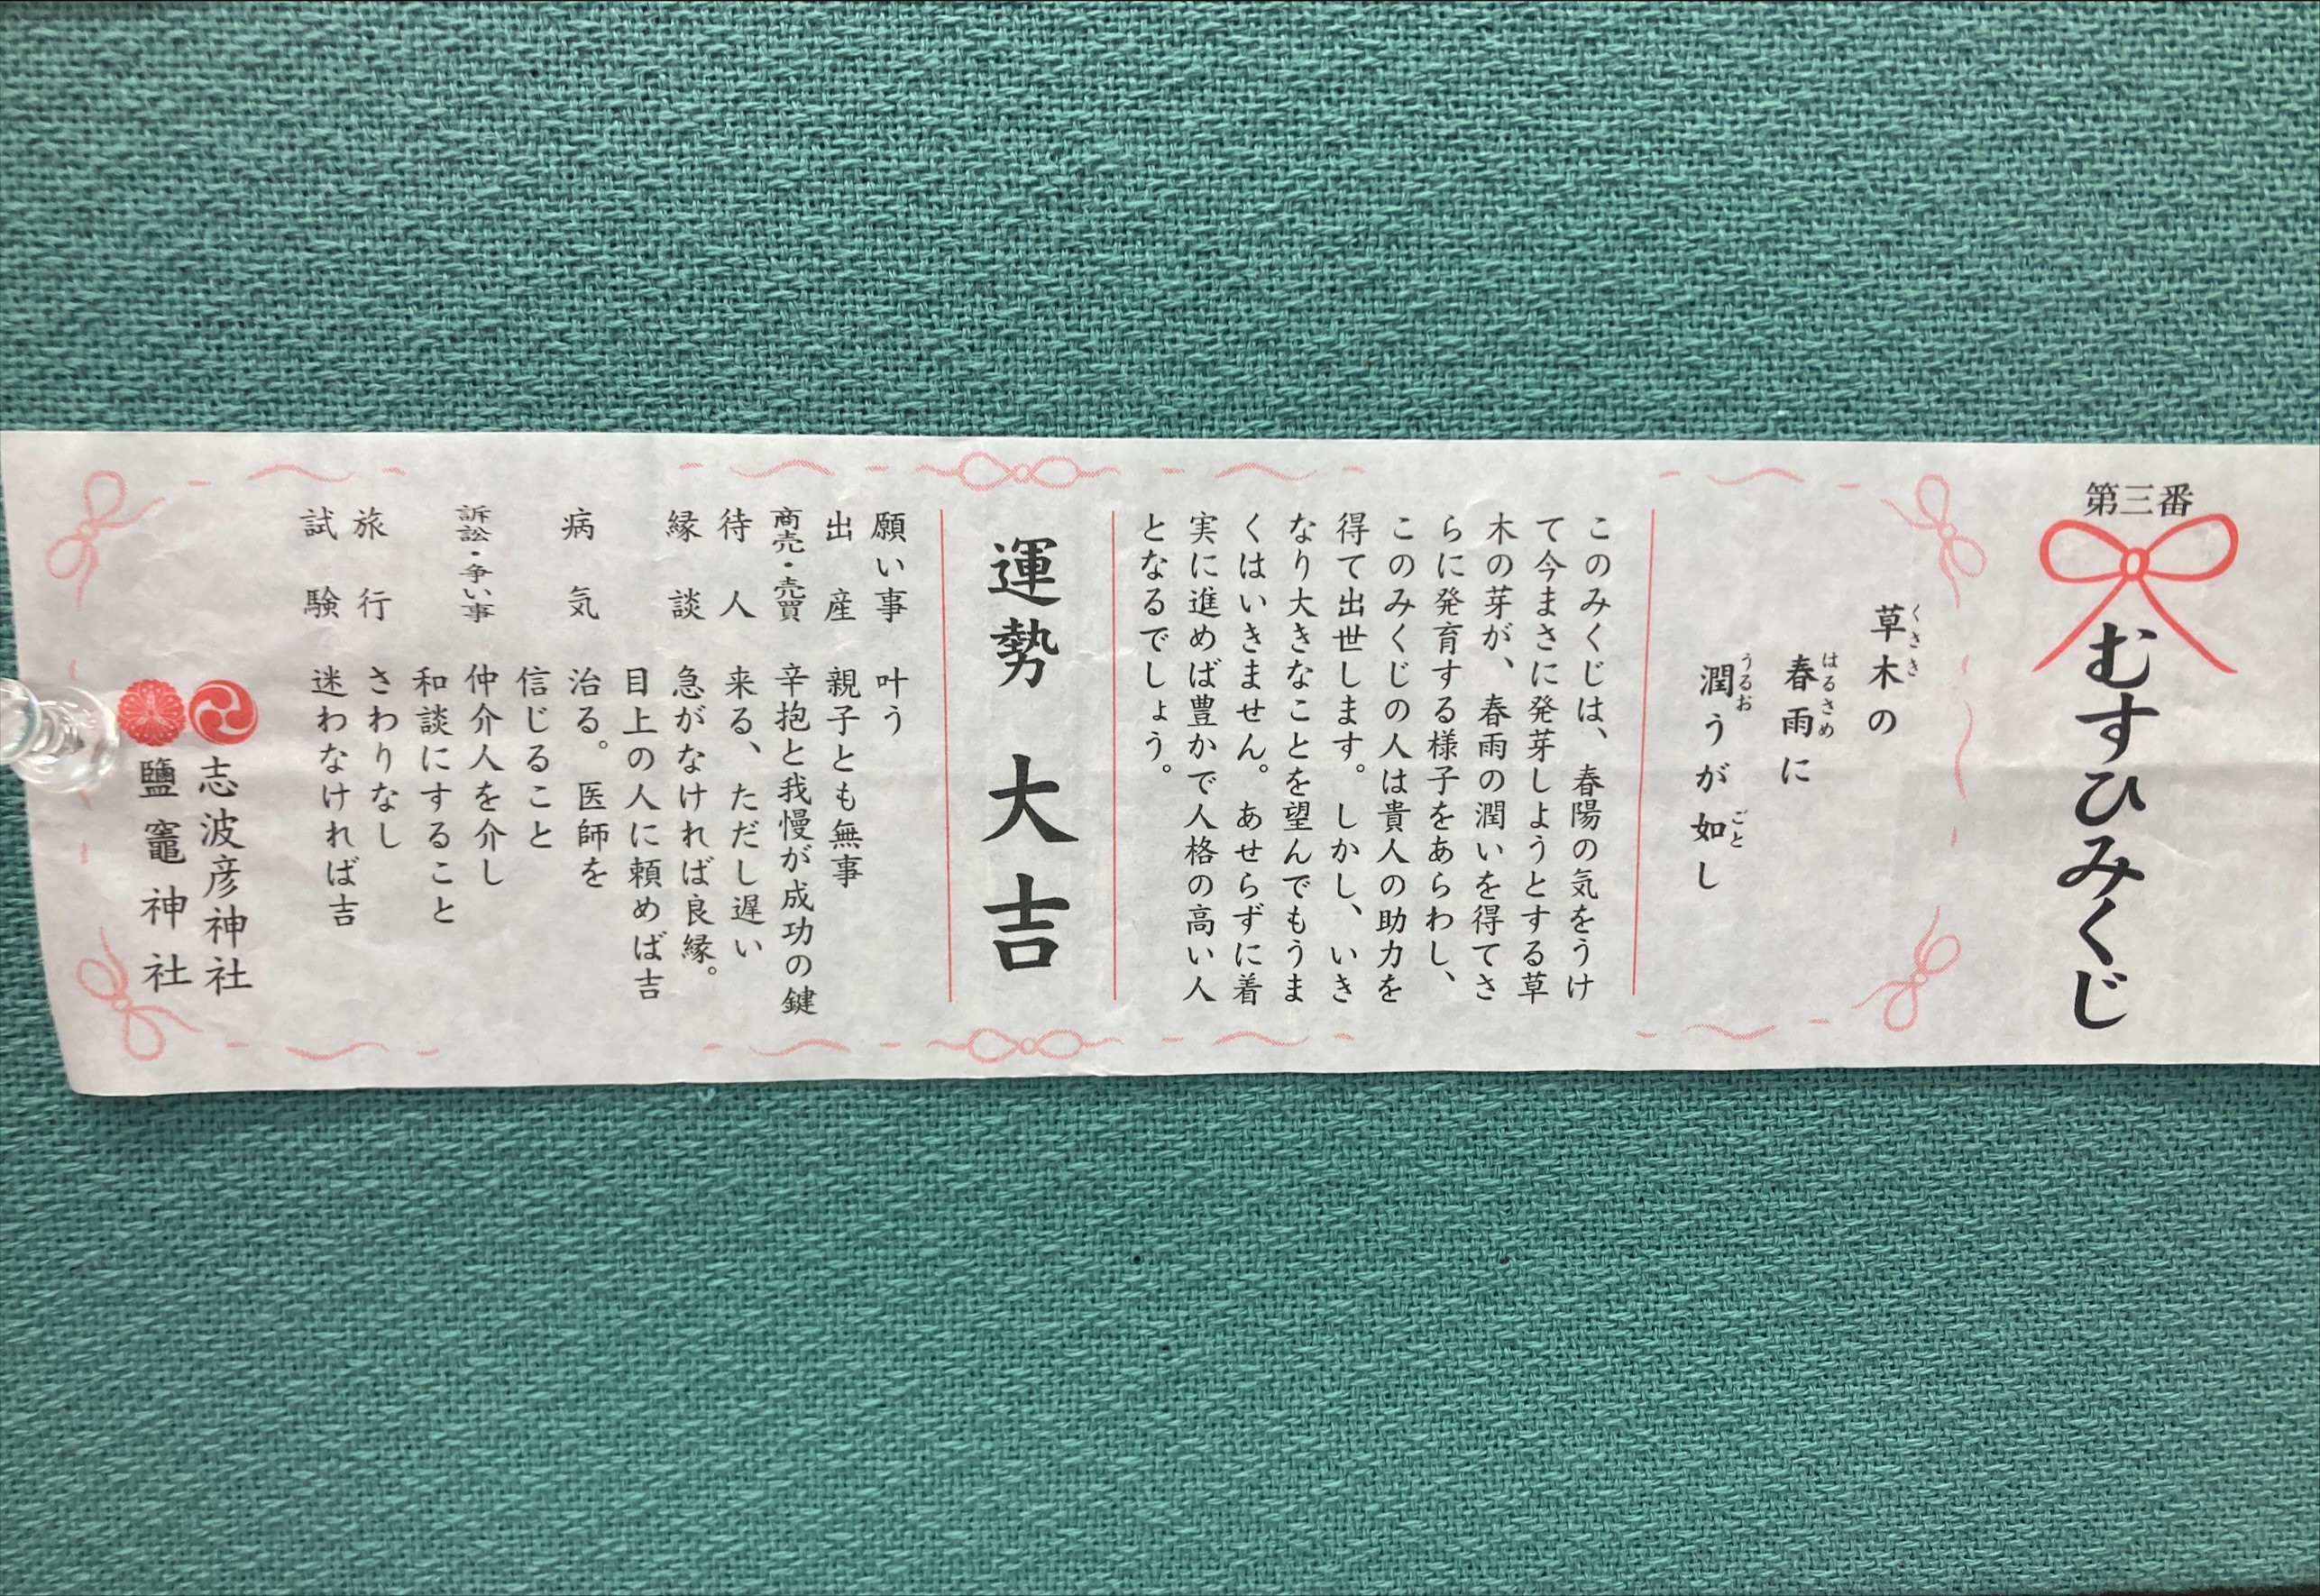 第三番
むすひみくじ
草木の
くさき
春雨に
はるさめ
潤うが如し
うるお ごと
このみくじは、春陽の気をうけ
て今まさに発芽しようとする草
木の芽が、春雨の潤いを得てさ
らに発育する様子をあらわし、
このみくじの人は貴人の助力を
得て出世します。しかし、いき
なり大きなことを望んでもうま
くはいきません。あせらずに着
実に進めば豊かで人格の高い人
となるでしょう。
運勢 大吉
願い事 叶う
出産 親子とも無事
商売・売買 辛抱と我慢が成功の鍵
待人 来る、ただし遅い
縁談 急がなければ良縁。
目上の人に頼めば吉
病気 治る。医師を
信じること
訴訟・争い事 仲介人を介し
和談にすること
旅行 さわりなし
試験 迷わなければ吉
志波彦神社
鹽竈神社